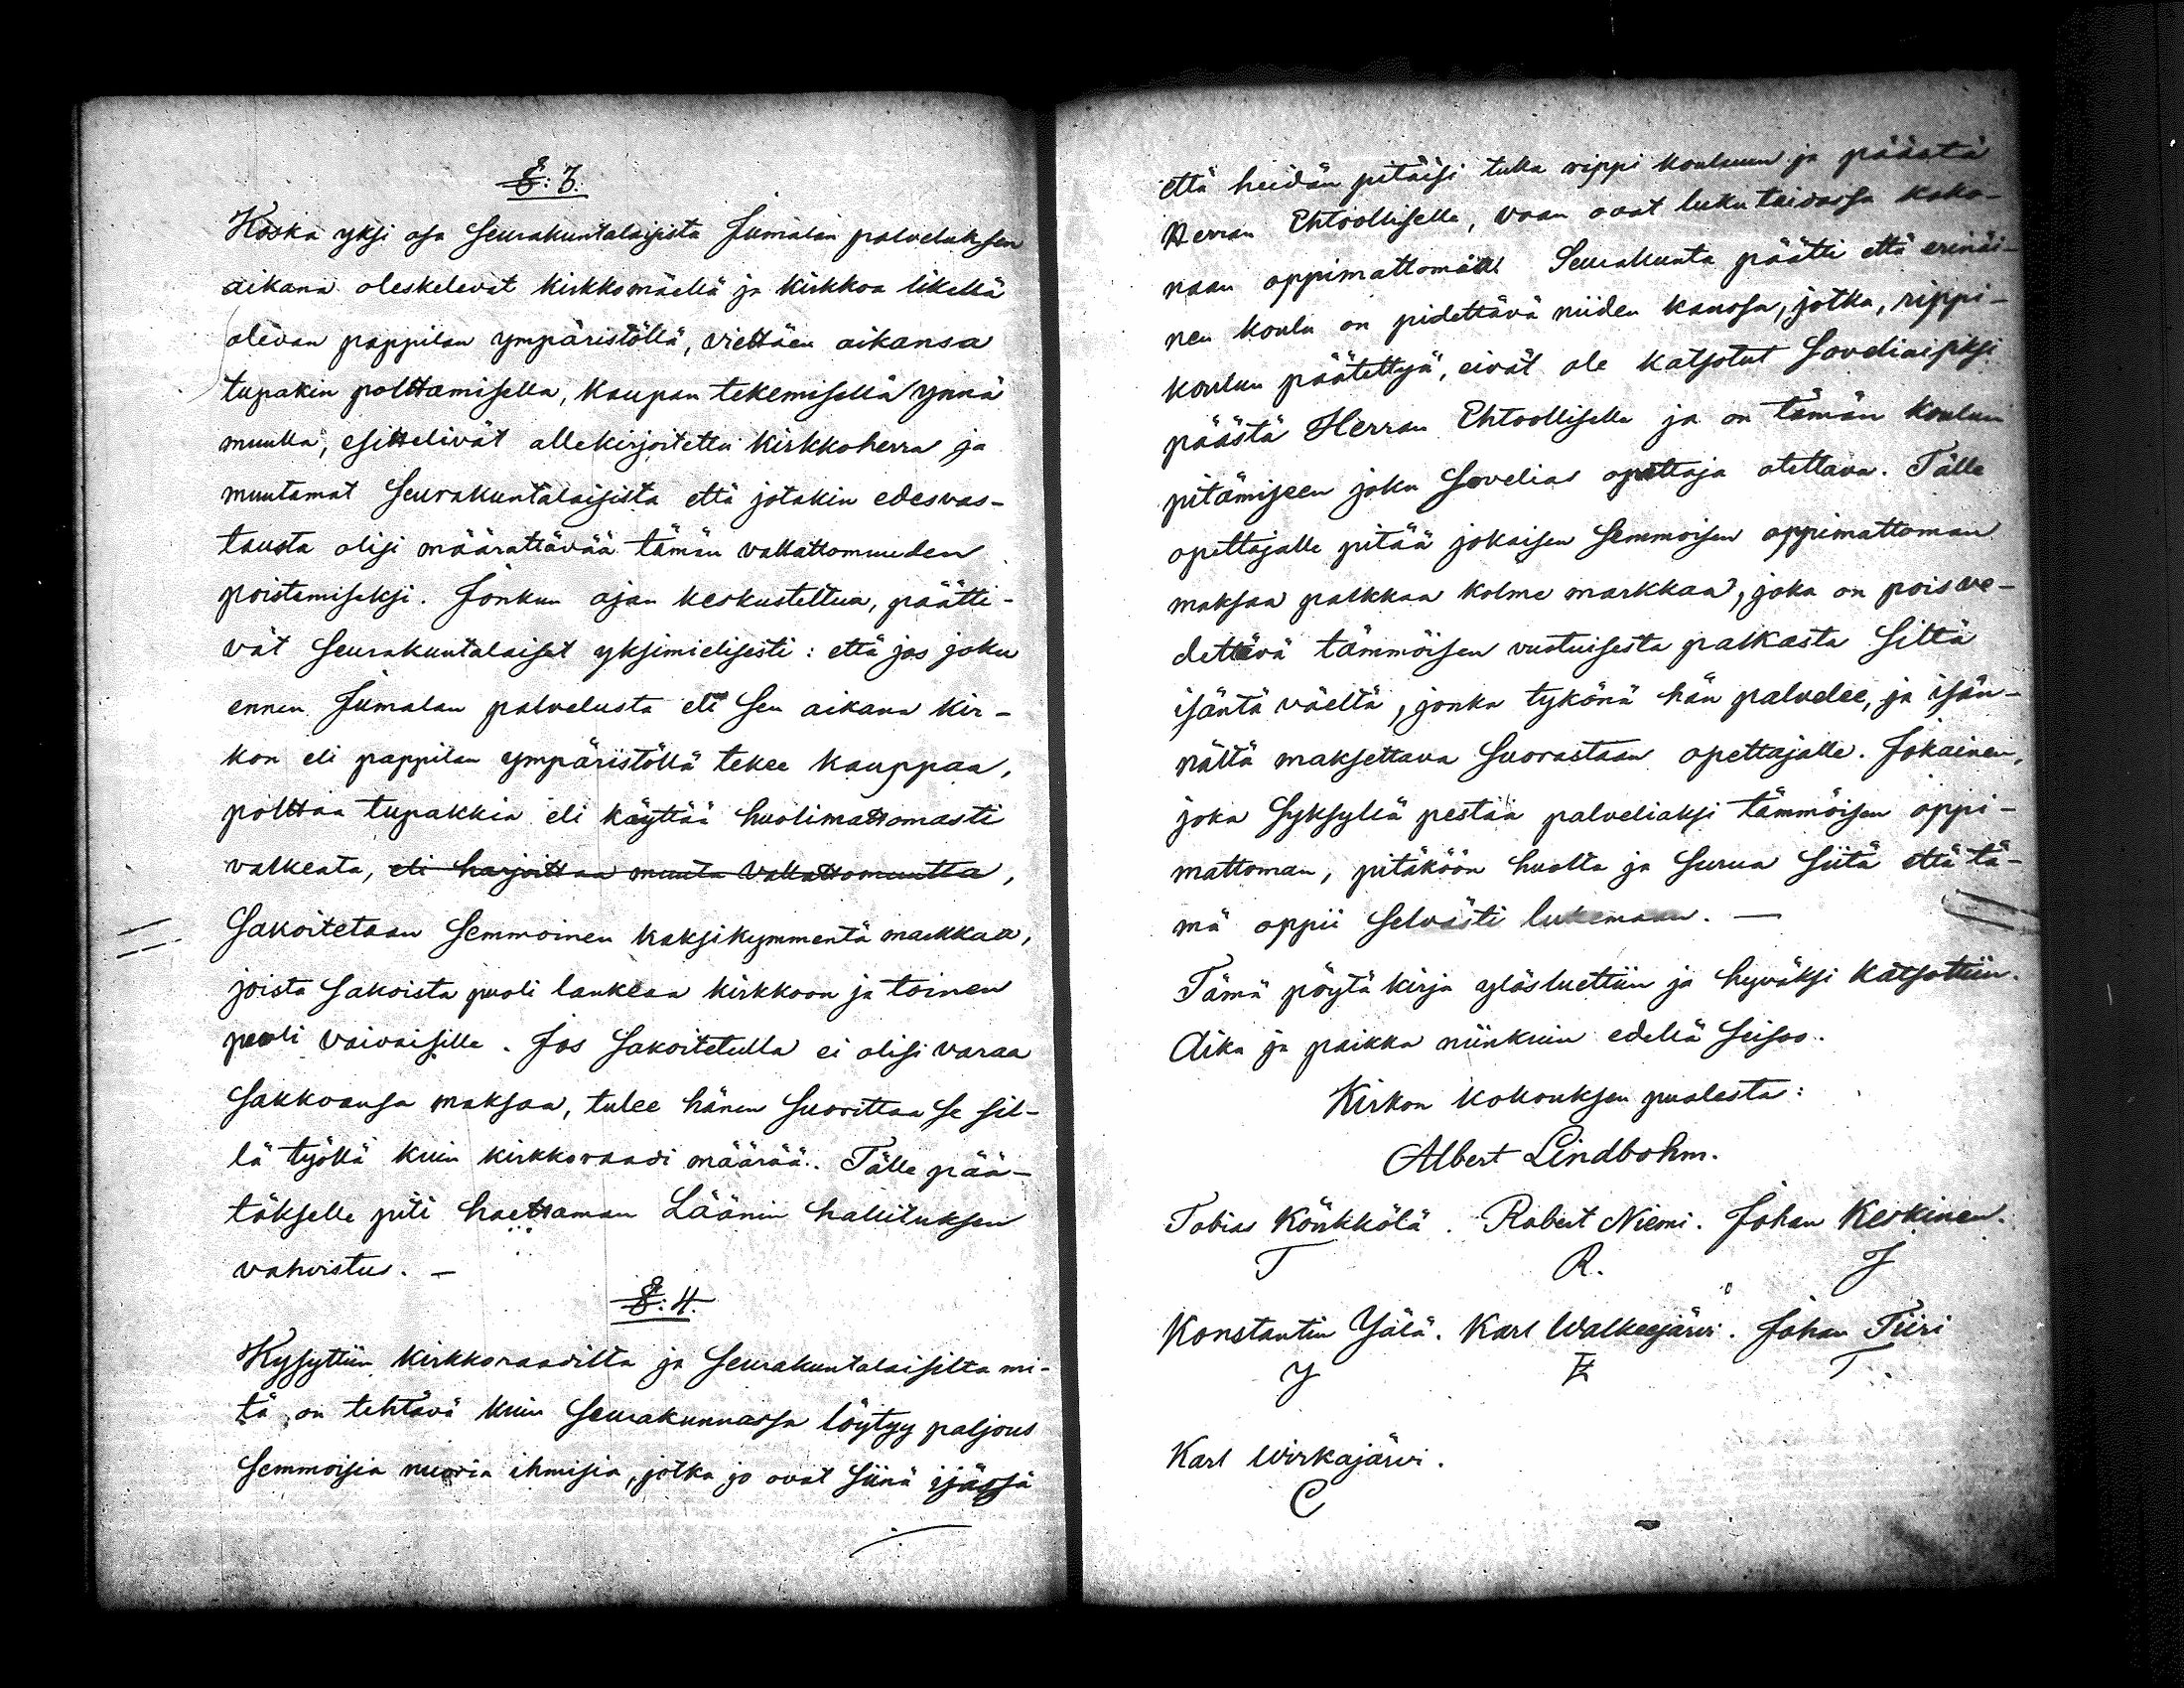 §: 3.
Koska yksi osa Seurakuntalaisista Jumalan palveluksen
aikana oleskelevat kirkkomäellä ja kirkkoa likellä
olevan pappilan ympäristöllä, viettäen aikansa
tupakin polttamisella, kaupan tekemisellä ynnä
muulla, esittelivät allekirjoitettu kirkkoherra ja
muutamat Seurakuntalaisista että jotakin edesvas-
tausta olisi määrättävää tämän vallattomuuden
poistamiseksi. Jonkun ajan keskusteltua, päätti-
vät Seurakuntalaiset yksimielisesti: että jos joku
ennen Jumalan palvelusta eli Sen aikana kir-
kon eli pappilan ympäristöllä tekee kauppaa,
polttaa tupakkia eli käyttää huolimattomasti
valkeata, eli harjoittaa muuta vallattomuutta,
Sakoitetaan Semmoinen kaksikymmentä markkaa,
joista Sakoista puoli lankeaa kirkkoon ja toinen
puoli vaivaisille. Jos Sakoitetulla ei olisi varaa
Sakkoansa maksaa, tulee hänen Suorittaa Se sil-
lä työllä kuin kirkkoraadi määrää. Tälle pää-
tökselle piti haettaman Läänin hallituksen
vahvistus. —
§: 4.
Kysyttiin kirkkoraadilta ja Seurakuntalaisilta mi-
tä on tehtävä kuin Seurakunnassa löytyy paljous
Semmoisia nuoria ihmisiä, jotka jo ovat Siinä ijässä
että heidän pitäisi tulla rippi kouluun ja päästä
Herran Ehtoolliselle, vaan ovat luku taidossa koko-
naan oppimattomat. Seurakunta päätti että erinäi-
nen koulu on pidettävä niiden kanssa, jotka, rippi-
koulun päätettyä, eivät ole katsotut Soveliaisiksi
päästä Herran Ehtoolliselle ja on tämän koulun
pitämiseen joku Sovelias opettaja otettava. Tälle
opettajalle pitää jokaisen Semmoisen oppimattoman
maksaa palkkaa kolme markkaa, joka on pois ve-
dettävä tämmöisen vuotuisesta palkasta Siltä
isäntä väeltä, jonka tykönä hän palvelee, ja isän-
nältä maksettava Suorastaan opettajalle. Jokainen,
joka Syksyllä pestää palveliaksi tämmöisen oppi-
mattoman, pitäköön huolta ja Surua Siitä että tä-
mä oppii Selvästi lukemaan. —
Tämä pöytä kirja ylösluettiin ja hyväksi katsottiin.
Aika ja paikka niinkuin edellä Seisoo.
Kirkon kokouksen puolesta:
Albert Lindbohm.
Tobias Könkkölä. Robert Niemi. Johan Keskinen.
T R. J
Konstantin Yälä. Karl Walkeejärvi. Johan Tiiri
Y T.
Karl Wirkajärvi.
C